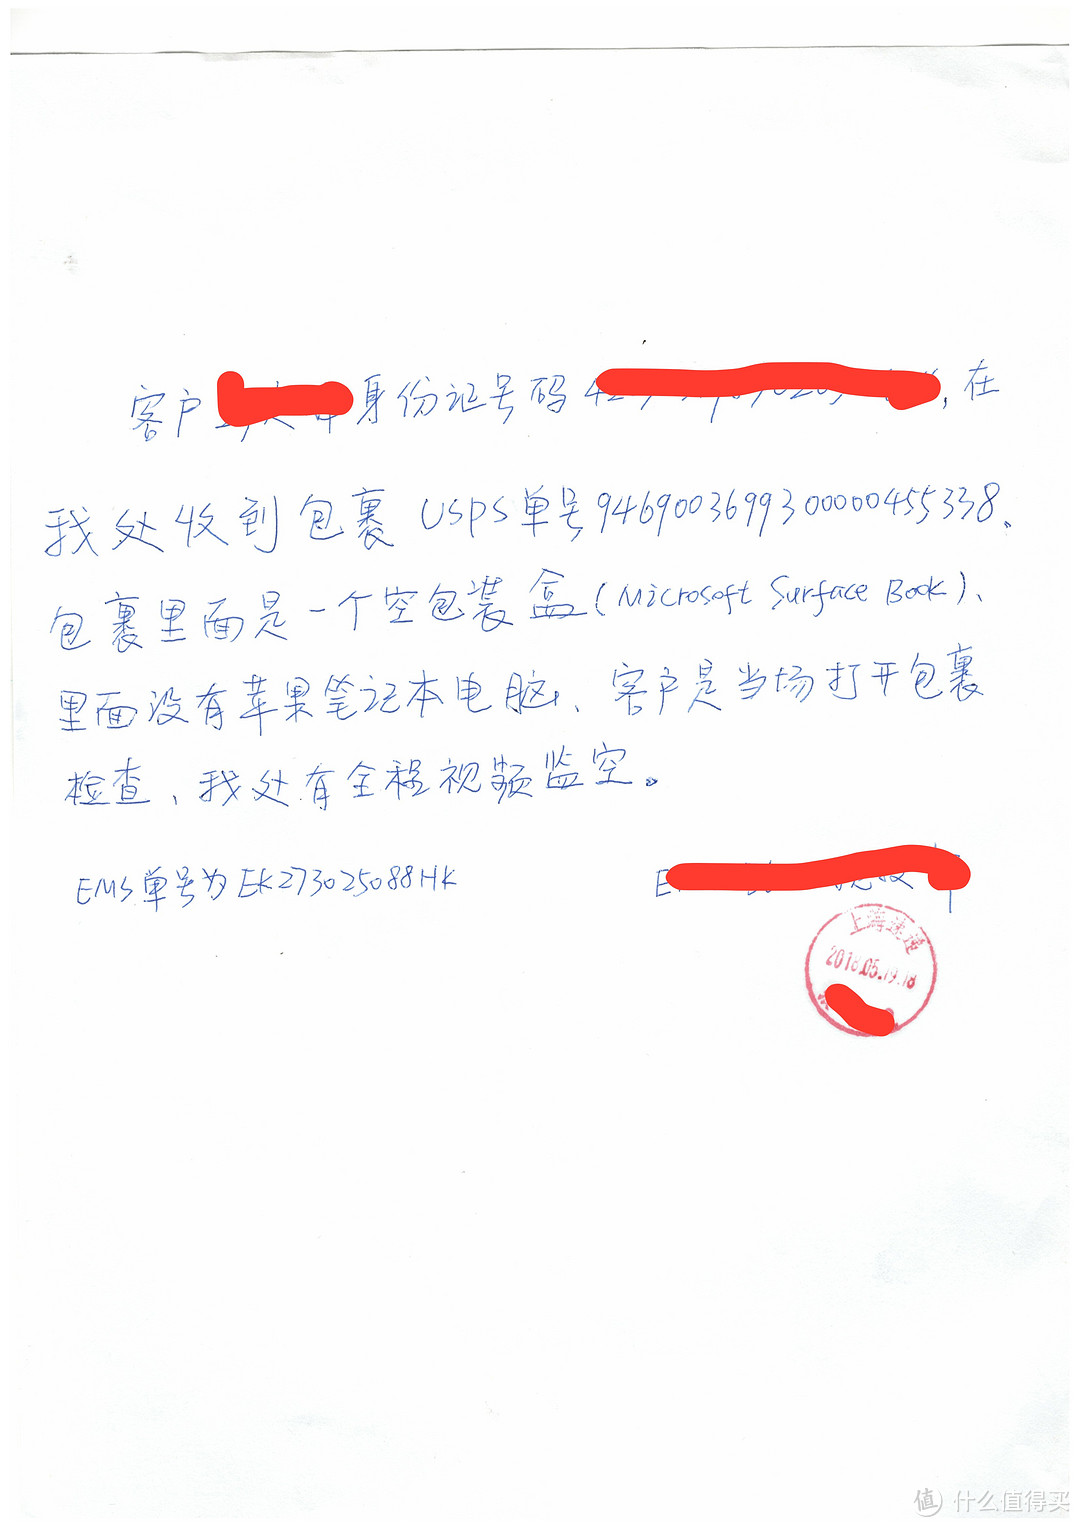 客户 身份证号码 , 在
我处收到包裹 USPS单号9469003699300000455338、
包裹里面是一个空包装盒(Microsoft Surface Book)、
里面没有苹果笔记本电脑、客户是当场打开包裹
检查、我处有全程视频监空。
EMS单号为EK273025088HK
上海速递
2018.05.19.18
值 什么值得买